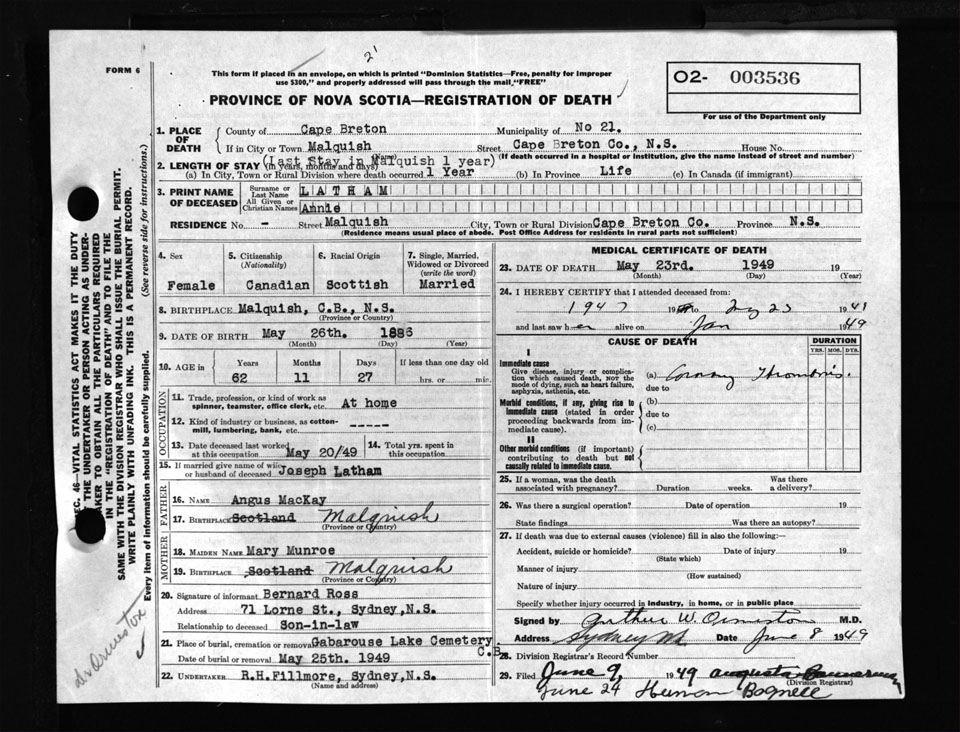 2'
FORM 6
This form if placed in an envelope, on which is printed "Dominion Statistics—Free, penalty for improper
use $300," and properly addressed will pass through the mail "FREE"
O2- 003536
For use of the Department only
PROVINCE OF NOVA SCOTIA—REGISTRATION OF DEATH
1. PLACE OF DEATH County of Cape Breton Municipality of No 21.
If in City or Town Malquish Street Cape Breton Co., N.S. House No.
(If death occurred in a hospital or institution, give the name instead of street and number)
2. LENGTH OF STAY (in years, months and days) (Last Stay in Malquish 1 year)
(a) In City, Town or Rural Division where death occurred 1 Year (b) In Province Life (c) In Canada (if immigrant)
3. PRINT NAME OF DECEASED Surname or Last Name LATHAM
All Given or Christian Names Annie
RESIDENCE No. - Street Malquish City, Town or Rural Division Cape Breton Co. Province N.S.
(Residence means usual place of abode. Post Office Address for residents in rural parts not sufficient)
4. Sex Female
5. Citizenship (Nationality) Canadian
6. Racial Origin Scottish
7. Single, Married, Widowed or Divorced (write the word) Married
8. BIRTHPLACE Malquish, C.B., N.S.
(Province or Country)
9. DATE OF BIRTH May 26th. 1886
(Month) (Day) (Year)
10. AGE in Years Months Days If less than one day old
62 11 27 hrs. or min.
OCCUPATION
11. Trade, profession, or kind of work as spinner, teamster, office clerk, etc. At home
12. Kind of industry or business, as cotton-mill, lumbering, bank, etc. -----
13. Date deceased last worked at this occupation May 20/49 14. Total yrs. spent in this occupation
15. If married give name of wife or husband of deceased Joseph Latham
FATHER
16. NAME Angus MacKay
17. BIRTHPLACE Scotland Malquish
(Province or Country)
MOTHER
18. MAIDEN NAME Mary Munroe
19. BIRTHPLACE Scotland Malquish
(Province or Country)
20. Signature of informant Bernard Ross
Address 71 Lorne St., Sydney,N.S.
Relationship to deceased Son-in-law
21. Place of burial, cremation or removal Gabarouse Lake Cemetery, C.B.
Date of burial or removal May 25th. 1949
22. UNDERTAKER R.H.Fillmore, Sydney,N.S.
(Name and address)
MEDICAL CERTIFICATE OF DEATH
23. DATE OF DEATH May 23rd. 1949 19
(Month) (Day) (Year)
24. I HEREBY CERTIFY that I attended deceased from:
1947 19 to 23 19
and last saw her alive on Jan 1949
CAUSE OF DEATH DURATION
YRS. MOS. DYS.
I
Immediate cause
Give disease, injury or complication which caused death, NOT the mode of dying, such as heart failure, asphyxia, asthenia, etc.
(a) Coronary Thrombosis.
due to
Morbid conditions, if any, giving rise to immediate cause (stated in order proceeding backwards from immediate cause).
(b)
due to
(c)
II
Other morbid conditions (if important) contributing to death but not causally related to immediate cause.
25. If a woman, was the death associated with pregnancy? Duration weeks. Was there a delivery?
26. Was there a surgical operation? Date of operation 19
State findings Was there an autopsy?
27. If death was due to external causes (violence) fill in also the following:—
Accident, suicide or homicide? Date of injury 19
(State which)
Manner of injury
(How sustained)
Nature of injury
Specify whether injury occurred in industry, in home, or in public place
Signed by Arthur W. Ormiston M.D.
Address Sydney NS Date June 8 1949
28. Division Registrar's Record Number
29. Filed June 9, 1949 Augusta
(Division Registrar)
June 24 Huron Bagnell
SEC. 46—VITAL STATISTICS ACT MAKES IT THE DUTY
OF THE UNDERTAKER OR PERSON ACTING AS UNDER-
TAKER TO OBTAIN ALL THE PARTICULARS REQUIRED
IN THE "REGISTRATION OF DEATH" AND TO FILE THE
SAME WITH THE DIVISION REGISTRAR WHO SHALL ISSUE THE BURIAL PERMIT.
WRITE PLAINLY WITH UNFADING INK. THIS IS A PERMANENT RECORD.
Every item of information should be carefully supplied. (See reverse side for instructions.)
Dr Ormiston